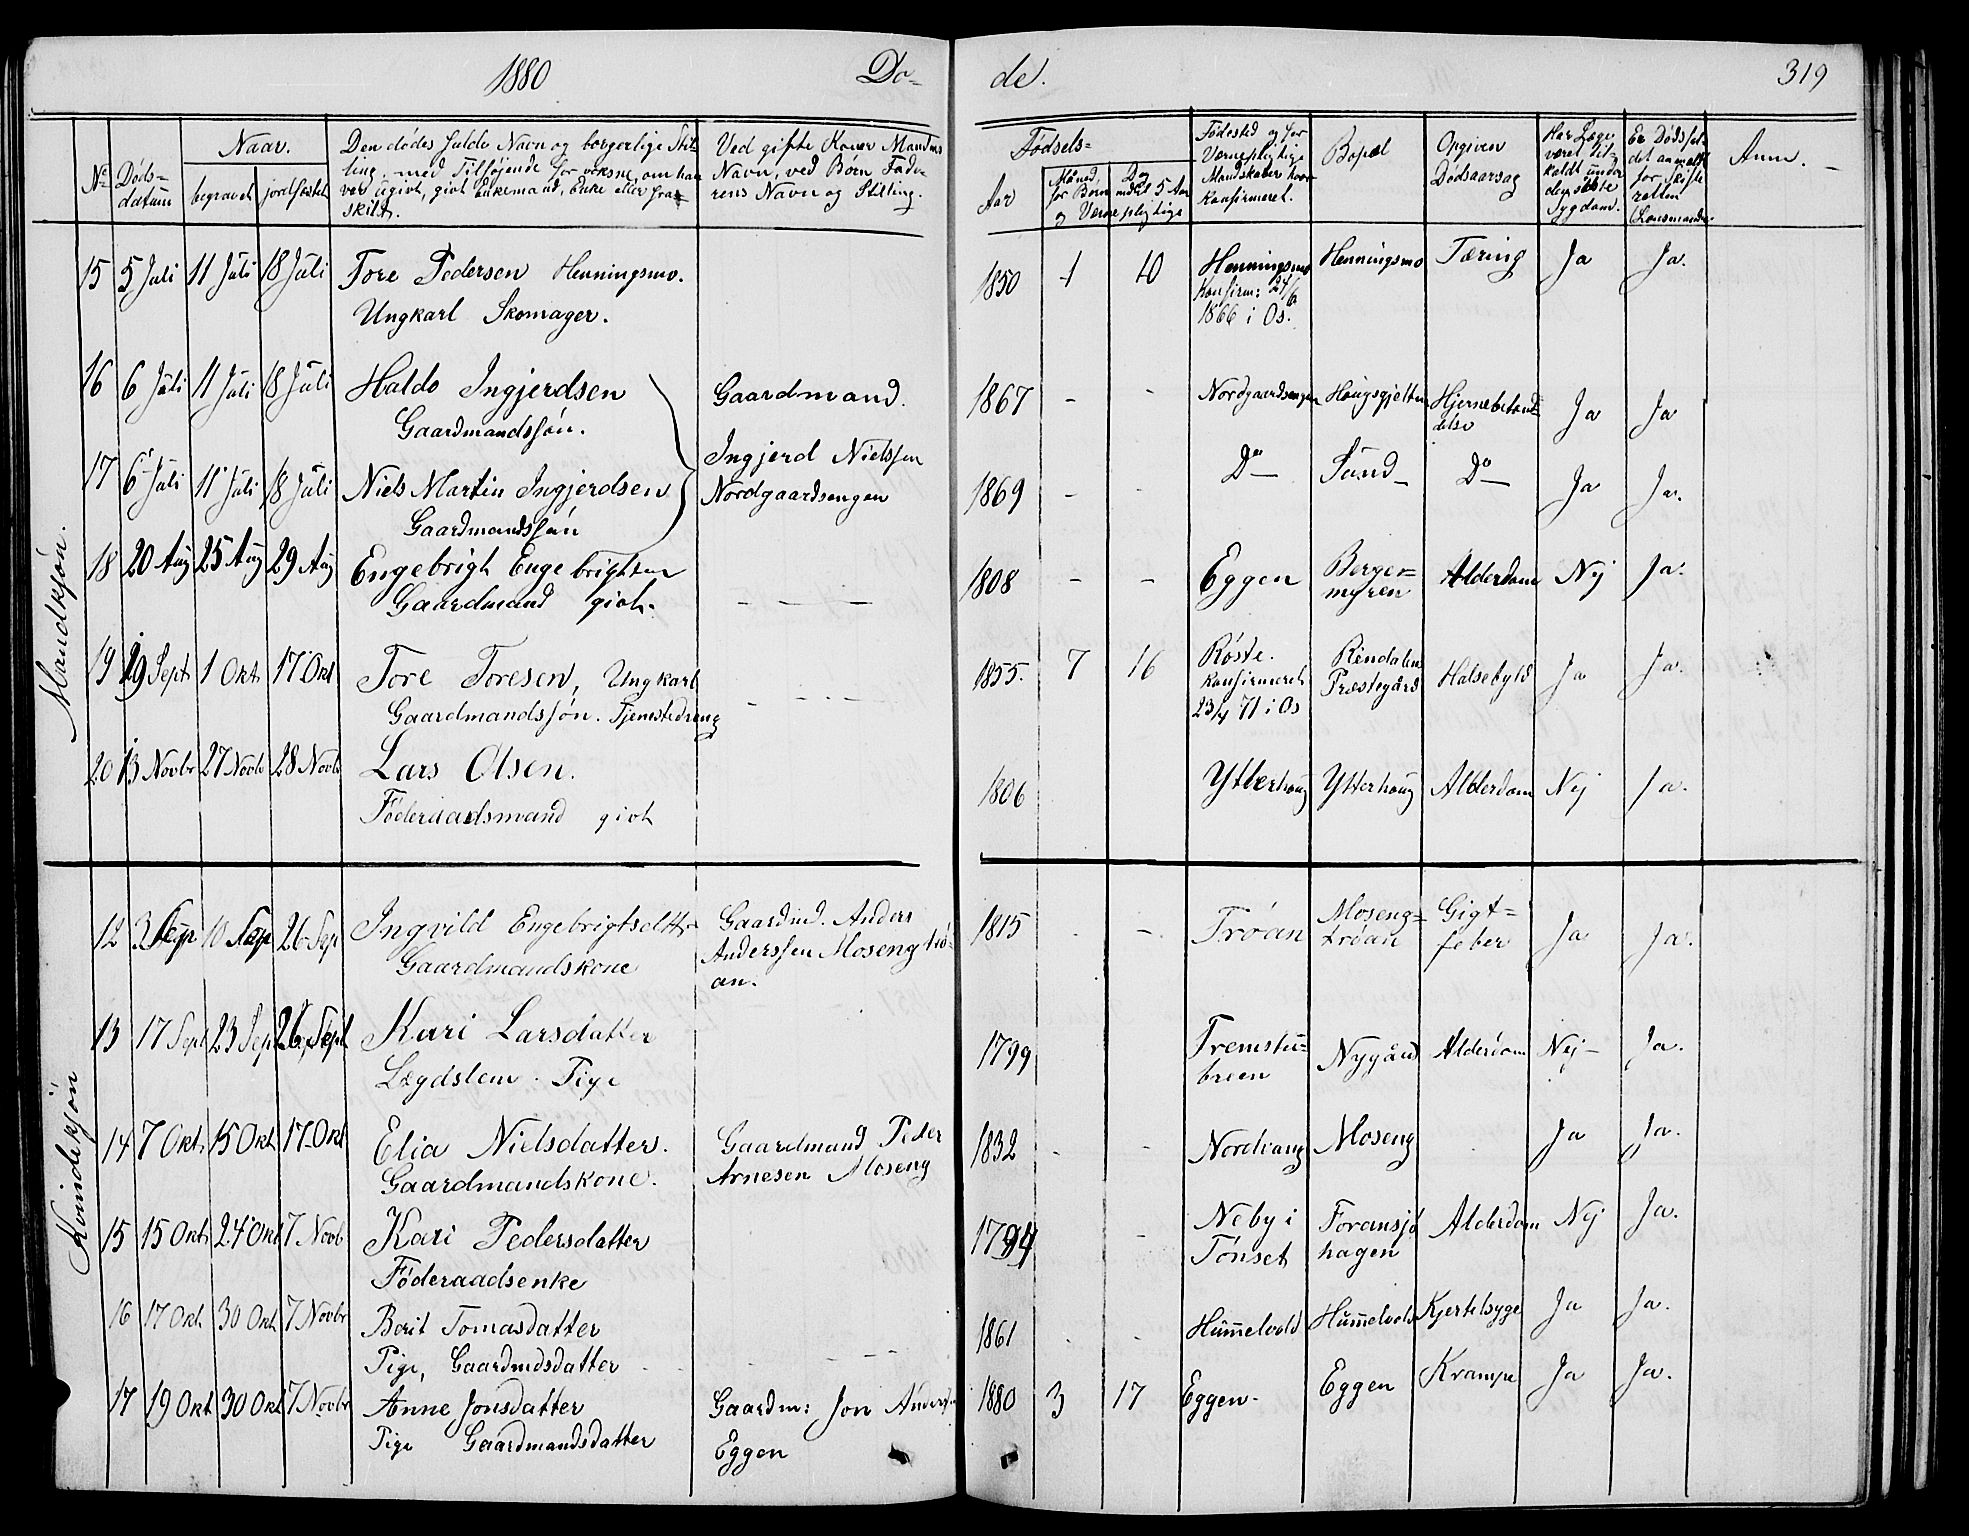 1880
Dö-
de.
319
Naar.
No Döds-datum begravet jordfæstet
Den dödes fulde Navn og borgerlige Stil-
ling, med Tilföjende for voksne, om han
var ugivt, givt Enkemand, Enke eller fra-
skilt.
Ved gifte Koner Mandens
Navn, ved Børn Fade-
rens Navn og Stilling.
Födsels-
Aar
Måned, Dag
for Børn indtil 5 Aar
og Vernepligtige
Födested og for
Vernepligtige
Mandskaber hvor
konfirmeret.
Bopæl
Opgiven
Dödsaarsag
Har Læge
været til-
kaldt under
den sidste
Sygdom.
Er Dödsfal-
det anmeldt
for skifte
retten
(Lensmanden
Anm.
Mandkjön.
15 5 Juli 11 Juli 18 Juli Tore Pedersen Henningsmo.
Ungkarl Skomager.
1850 1 10 Henningsmo Henningsmo Tæring Ja Ja.
Konfirm: 24/6
1866 i Os.
16 6 Juli 11 Juli 18 Juli Haldo Ingjerdsen Gaardmand.
Gaardmandssön.
1867 - - Nordgaardsengen Haugsgjelten Hjernebetænd-
else Ja Ja
17 6 Juli 11 Juli 18 Juli Niels Martin Ingjerdsen Ingjerd Nielssen
Nordgaardsengen
Gaardmandssön
1869 - - Do Sund Do Ja Ja.
18 20 Aug 25 Aug 29 Aug Engebrigt Engebrigtsen
Gaardmand givt. - - - -
1808 - - Eggen Berger-
myren Alderdom Nej Ja.
19 19 Sept 1 Okt 17 Okt Tore Toresen, Ungkarl
Gaardmandssön. Tjenestedreng - - -
1855. 7 16 Röste. Rendalen
konfirmeret Præstegård Halsebyld Ja Ja.
23/4 71 i Os
20 13 Novbr 27 Novb 28 Novb Lars Olsen.
Föderaadsmand givt
1806 Ytterhaug Ytterhaug Alderdom Nej Ja.
Kvindekjön
12 3 Sep 10 Sep 26 Sep Ingvild Engebrigtsdtt Gaardmd. Anders
Gaardmandskone Anderssen Mosengtrö-
an.
1815 - - Tröan Moseng- Gigt-
tröan feber Ja Ja.
13 17 Sept 23 Sep 26 Sept Kari Larsdatter
Lægdslem. Pige
1799 Tremstu-
breen Nygård Alderdom Nej- Ja.
14 7 Okt 15 Okt 17 Okt Elia Nielsdatter. Gaardmand Peder
Gaardmandskone. Arnesen Moseng
1832 - - Nordvang Moseng Ja Ja.
15 15 Okt 24 Okt 7 Novb Kari Pedersdatter
Föderaadsenke
1794 - Neby i Foransjö
Tönset hagen Alderdom Nej Ja.
16 17 Okt 30 Okt 7 Novbr Berit Tomasdatter
Pige, Gaardmdsdatter - - - -
1861 - - Hummelvold Hummelvold Kjertelsyge Ja Ja.
17 19 Okt 30 Okt 7 Novbr Anne Jonsdatter Gaardm: Jon Anders
Pige Gaardmandsdatter Eggen
1880 3 17 Eggen. Eggen Krampe Ja Ja.